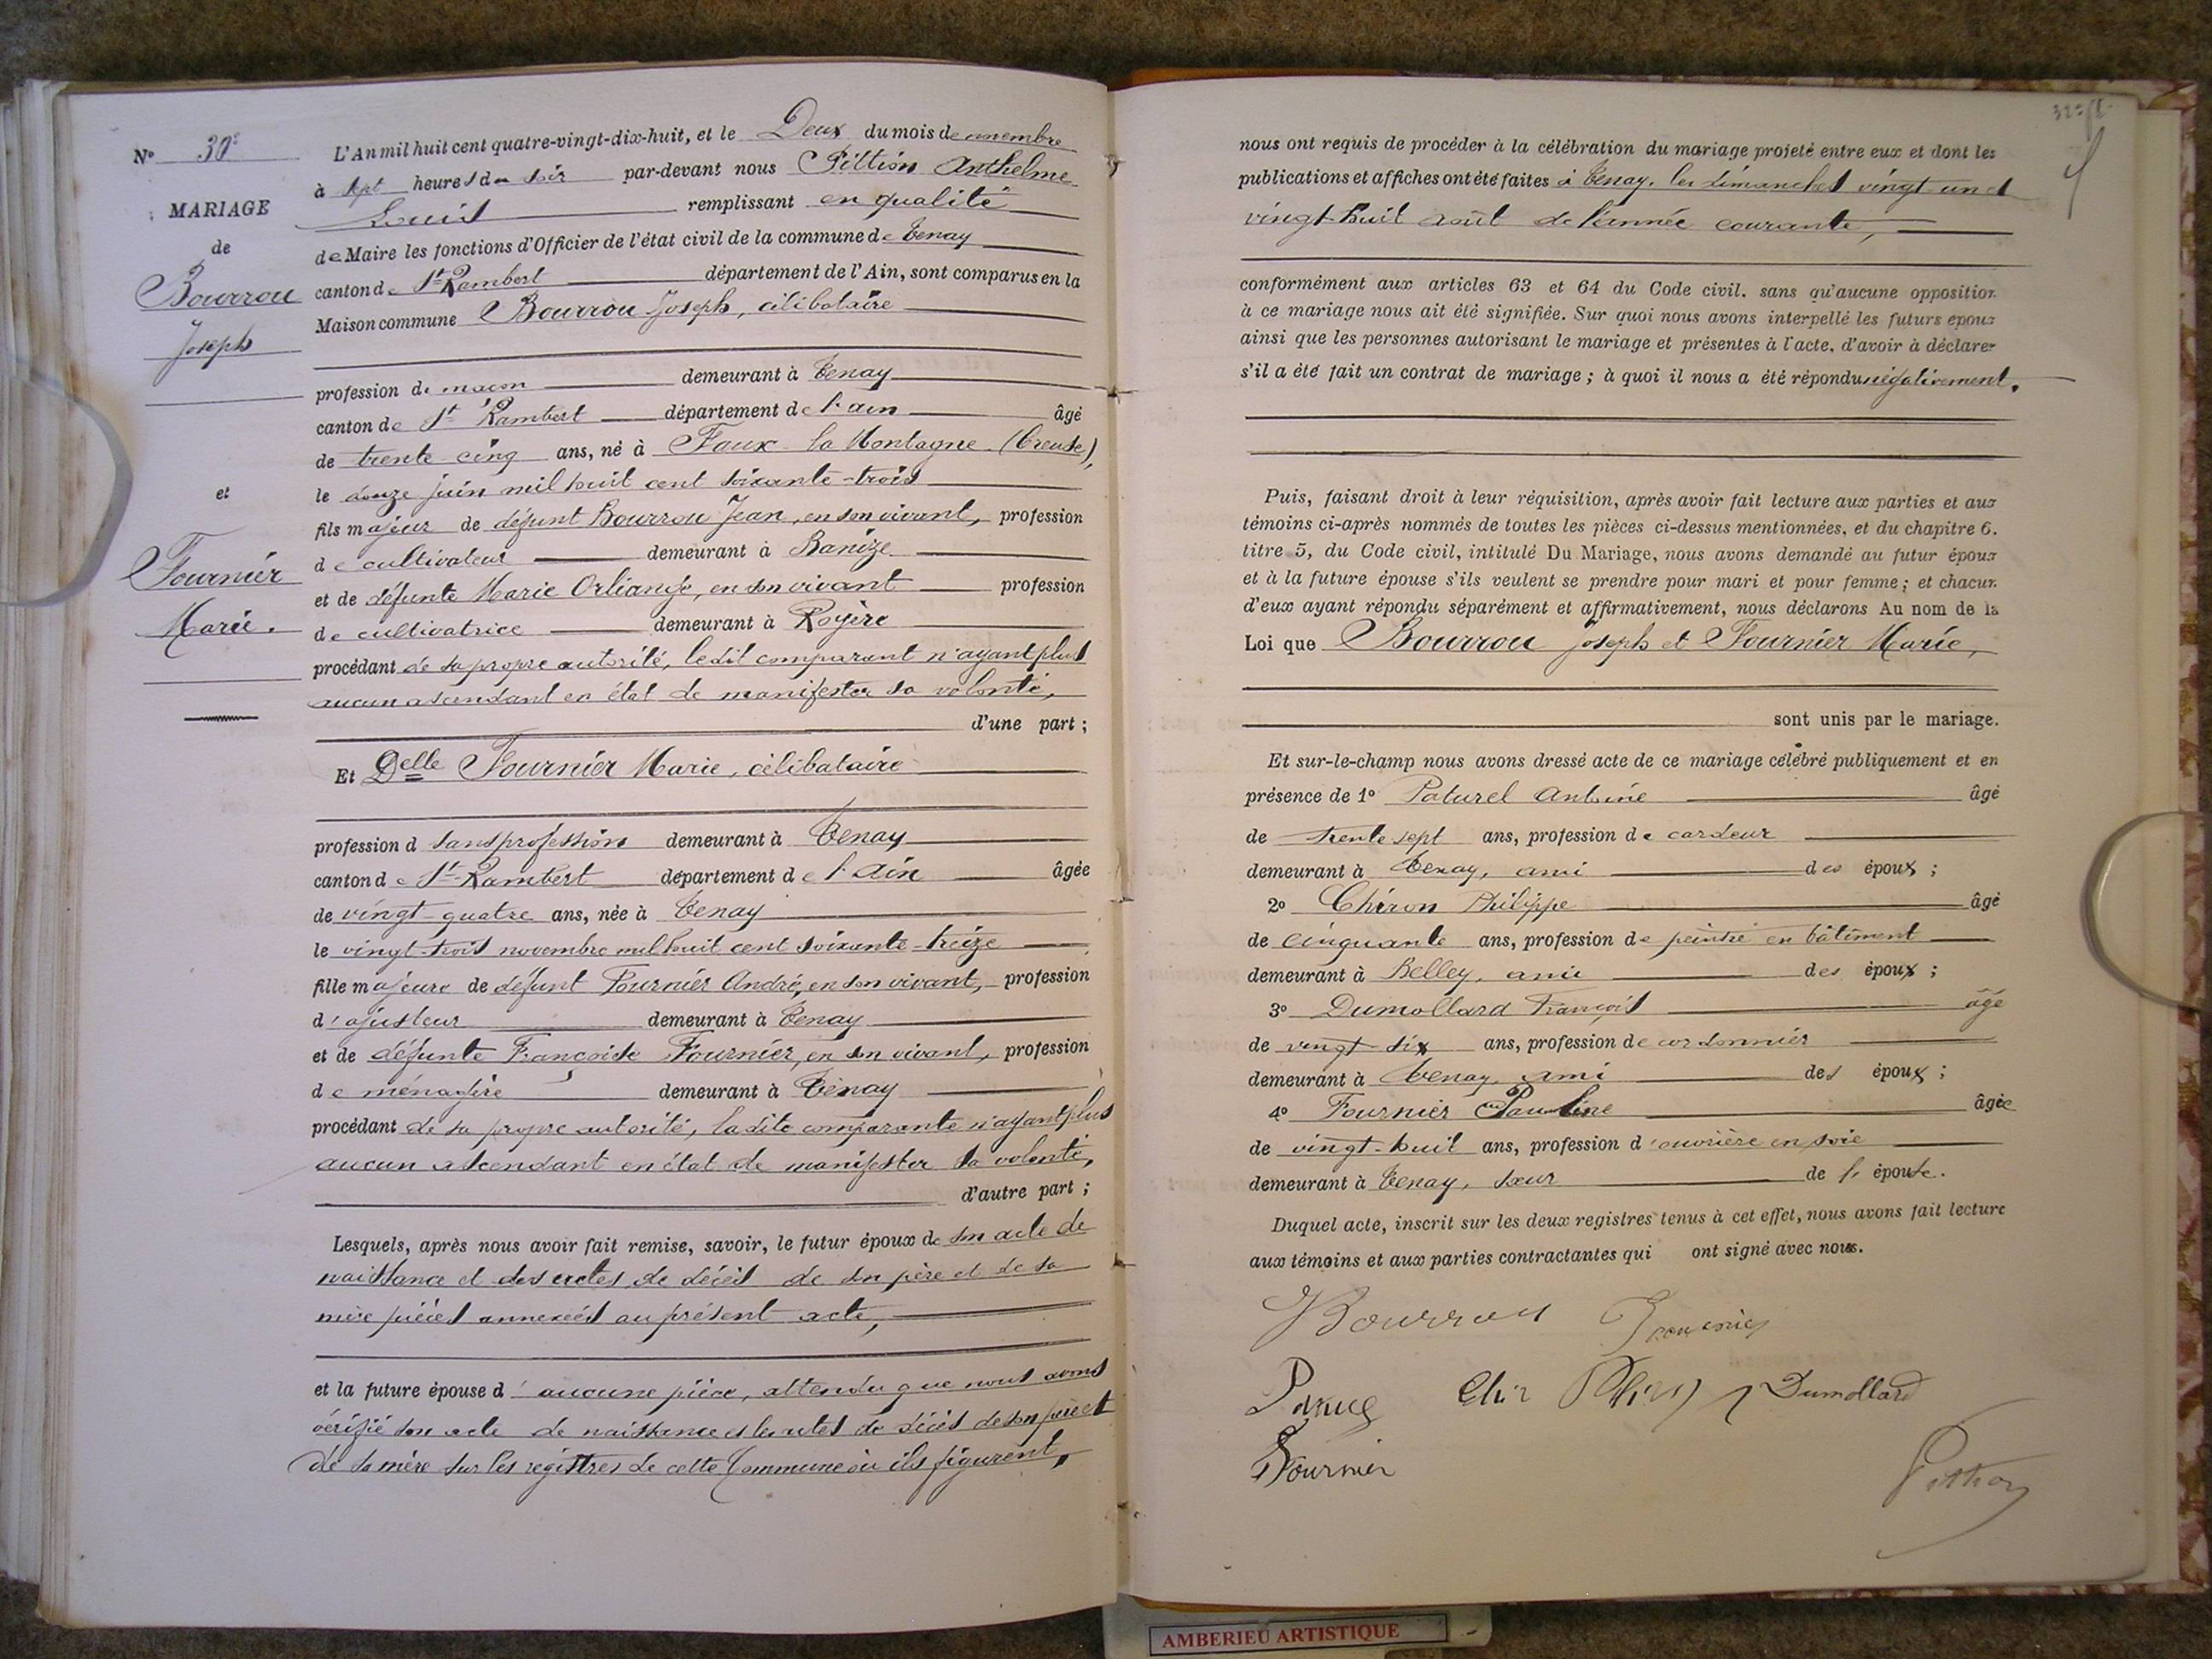 N° 30
MARIAGE
de
Bourrou
Joseph
et
Fournier
Marie.
L'An mil huit cent quatre-vingt-dix-huit, et le Deux du mois de novembre
à sept heures du soir par-devant nous Pittion Anthelme
Louis remplissant en qualité
de Maire les fonctions d'Officier de l'état civil de la commune de Tenay
canton de St Rambert département de l'Ain, sont comparus en la
Maison commune Bourrou Joseph, célibataire
profession de maçon demeurant à Tenay
canton de St Rambert département de l'ain âgé
de trente cinq ans, né à Faux-la Montagne (Creuse),
le douze juin mil huit cent soixante-trois
fils majeur de défunt Bourrou Jean, en son vivant, profession
de cultivateur demeurant à Banize
et de défunte Marie Orliange, en son vivant profession
de cultivatrice demeurant à Royère
procédant de sa propre autorité, ledit comparant n'ayant plus
aucun ascendant en état de manifester sa volonté,
d'une part ;
Et Delle Fournier Marie, célibataire
profession d sans profession demeurant à Tenay
canton de St Rambert département de l'Ain âgée
de vingt-quatre ans, née à Tenay
le vingt-trois novembre mil huit cent soixante-treize
fille majeure de défunt Fournier André, en son vivant, profession
d'ajusteur demeurant à Tenay
et de défunte Françoise Fournier, en son vivant, profession
de ménagère demeurant à Tenay
procédant de sa propre autorité, ladite comparante n'ayant plus
aucun ascendant en état de manifester sa volonté,
d'autre part ;
Lesquels, après nous avoir fait remise, savoir, le futur époux de son acte de
naissance et des actes de décès de son père et de sa
mère pièces annexées au présent acte,
et la future épouse d'aucune pièce, attendu que nous avons
vérifié son acte de naissance et les actes de décès de son père et
de sa mère sur les registres de cette Commune où ils figurent,
nous ont requis de procéder à la célébration du mariage projeté entre eux et dont les
publications et affiches ont été faites à Tenay, les dimanches vingt-un et
vingt-huit août de l'année courante,
conformément aux articles 63 et 64 du Code civil, sans qu'aucune opposition
à ce mariage nous ait été signifiée. Sur quoi nous avons interpellé les futurs époux
ainsi que les personnes autorisant le mariage et présentes à l'acte, d'avoir à déclarer
s'il a été fait un contrat de mariage ; à quoi il nous a été répondu négativement.
Puis, faisant droit à leur réquisition, après avoir fait lecture aux parties et aux
témoins ci-après nommés de toutes les pièces ci-dessus mentionnées, et du chapitre 6.
titre 5, du Code civil, intitulé Du Mariage, nous avons demandé au futur époux
et à la future épouse s'ils veulent se prendre pour mari et pour femme ; et chacun
d'eux ayant répondu séparément et affirmativement, nous déclarons Au nom de la
Loi que Bourrou Joseph et Fournier Marie,
sont unis par le mariage.
Et sur-le-champ nous avons dressé acte de ce mariage célébré publiquement et en
présence de 1° Paturel Antoine âgé
de trente sept ans, profession de cardeur
demeurant à Tenay, ami des époux ;
2° Chiron Philippe âgé
de cinquante ans, profession de peintre en bâtiment
demeurant à Belley, ami des époux ;
3° Dumollard François âgé
de vingt-six ans, profession de cordonnier
demeurant à Tenay, ami des époux ;
4° Fournier Pauline âgée
de vingt-huit ans, profession d'ouvrière en soie
demeurant à Tenay, sœur de l'épouse.
Duquel acte, inscrit sur les deux registres tenus à cet effet, nous avons fait lecture
aux témoins et aux parties contractantes qui ont signé avec nous.
Bourrou Fournier
Dumollard
Fournier
Pittion
AMBERIEU ARTISTIQUE